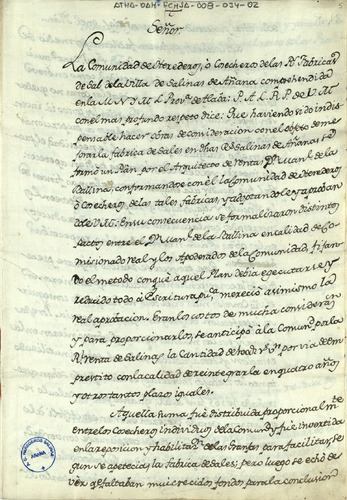 ATHA-DAH-FCMJA-008-034-02
Señor
La Comunidad de Herederos, ò Cosecheros de las Rs. Fabricas
de Sal de la Villa de Salinas de Añana comprehendida
en la M.N.Y M.L. Provª. de Alaba: P. A L. R. P. de V. M.
con el mas profundo respeto dice: Que haviendo sido indis
pensable hacer obras de consideración con el objeto de me
jorar la fábrica de Sales en dhas Rs. Salinas de Añana, se
formó un Plan por el Arquitecto de Rentas Dn. Manl. de la
Ballina, conformandose con él la Comunidad de Herederos
ò Cosecheros de las tales fabricas, y adoptandole y aproban
dole V. M. En su consecuencia se formalizaron distintos
pactos entre el Dn. Manl. de la Ballina en calidad de Co-
misionado real y los Apoderados de la Comunidad, fijan
do el metodo con que aquel Plan debia executarse, y
reducido todo à Escritura pucª. mereció asimismo la
real aprobacion. Eran los costos de mucha consideracn.
y para proporcionarlos, se anticipó à la Comund. por la
Rl. renta de Salinas la Cantidad de rs. vn. por via de em
prestito con la calidad de reintegrarla en quatro años,
y otros tantos plazos iguales.
Aquella suma fue distribuida proporcionalmte.
entre los Cosecheros individuos de la Comund. y fue invertida
en la reposicion y habilitazn. de las Granjas para facilitar, se
gun se apetecia, la fabrica de Sales; pero luego se echó de
ver que faltaban muy crecidos fondos para la conclusion
AÑANA